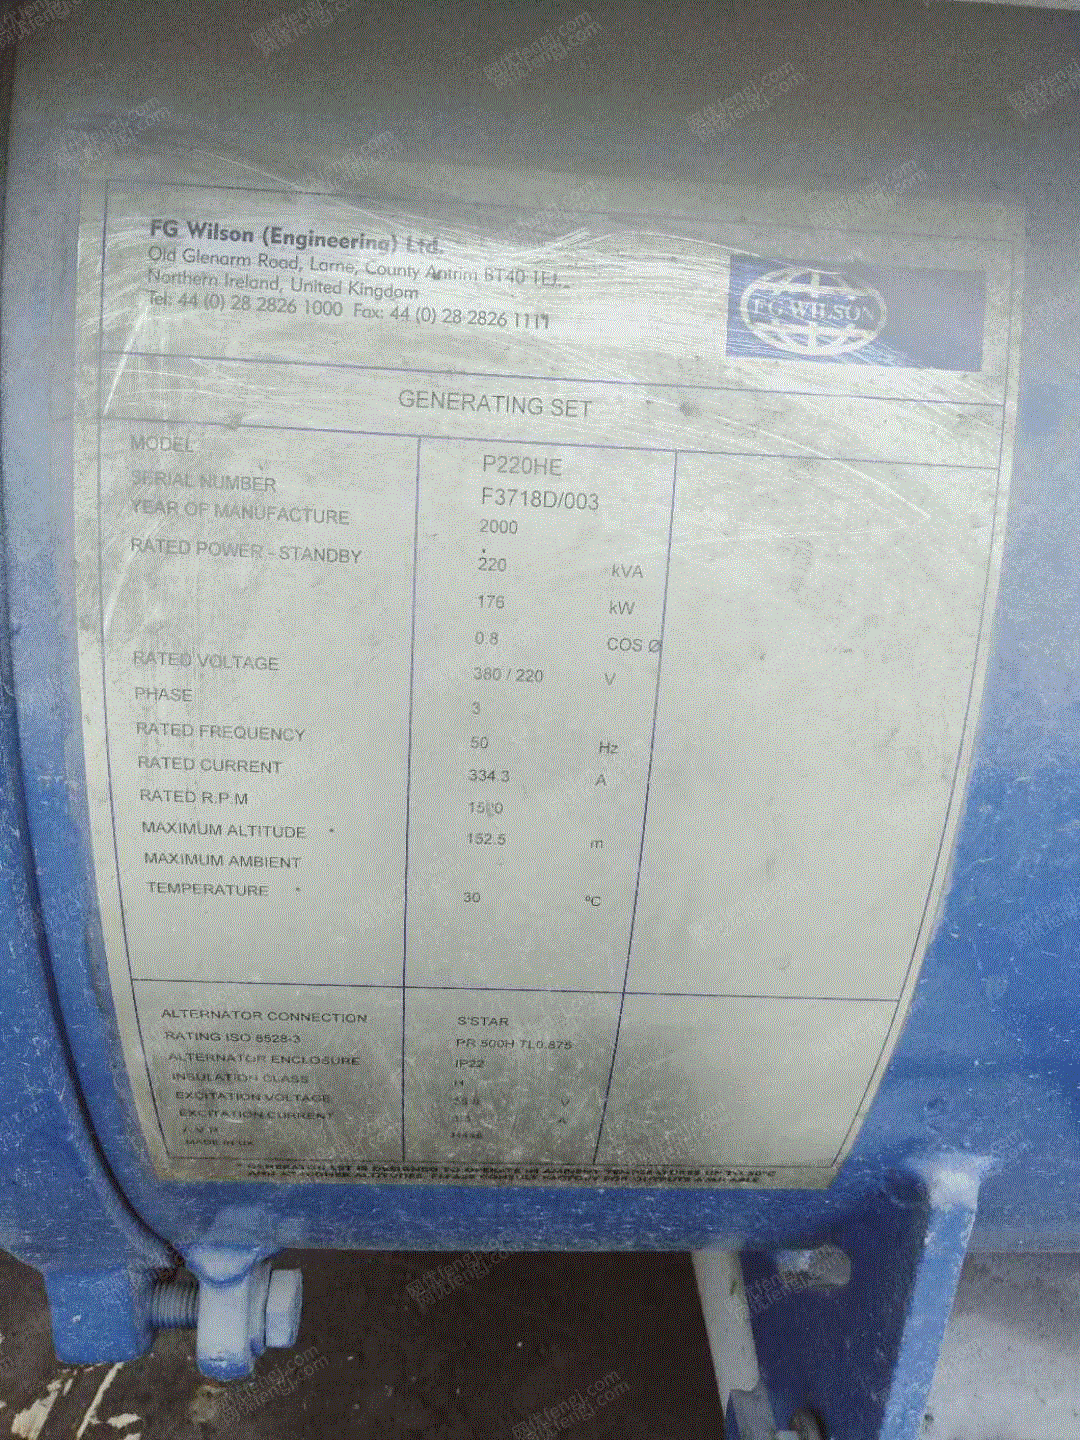 FG Wilson (Engineering) Ltd.
Old Glenarm Road, Larne, County Antrim BT40 1EJ.
Northern Ireland, United Kingdom
Tel: 44 (0) 28 2826 1000 Fax: 44 (0) 28 2826 1111
FG WILSON
GENERATING SET
MODEL P220HE
SERIAL NUMBER F3718D/003
YEAR OF MANUFACTURE 2000
RATED POWER - STANDBY 220 kVA
176 kW
0.8 COS Ø
RATED VOLTAGE 380 / 220 V
PHASE 3
RATED FREQUENCY 50 Hz
RATED CURRENT 334.3 A
RATED R.P.M
MAXIMUM ALTITUDE * 152.5 m
MAXIMUM AMBIENT
TEMPERATURE * 30 ºC
ALTERNATOR CONNECTION S'STAR
RATING ISO 8528-3 PR 500H TL0.875
ALTERNATOR ENCLOSURE IP22
INSULATION CLASS H
EXCITATION VOLTAGE V
EXCITATION CURRENT A
A.V.R
MADE IN UK
* GENERATOR SET IS DESIGNED TO OPERATE IN AMBIENT TEMPERATURES UP TO 50°C